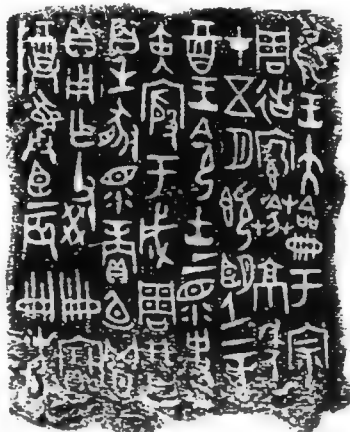 隹王大龠于宗
周館京年
才五月既望辛
酉王令士上眔史
寅殷于成周
百生豚眔賞卣鬯
貝用乍父癸寶
尊彝臣辰冊